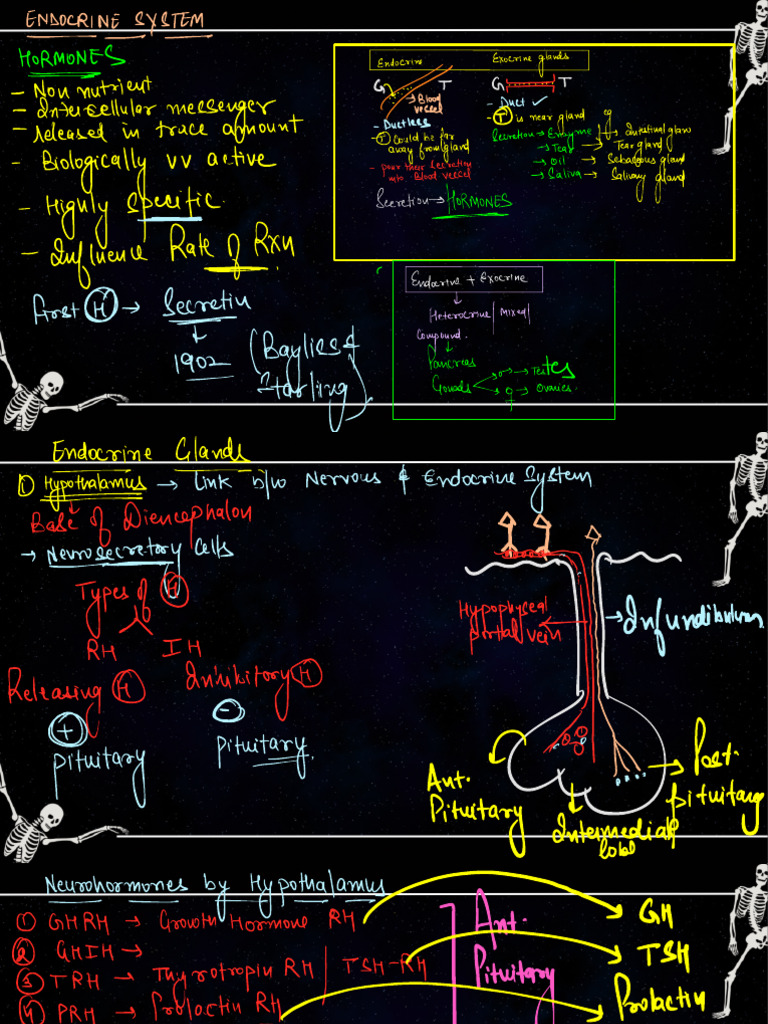 ENDOCRINE SYSTEM
HORMONES
- Non nutrient
- Intercellular messenger
- released in trace amount
- Biologically vv active
- Highly Specific
- Influence Rate of Rxn
first (H) → Secretin
↓
1902 (Bayliss & Starling)
Endocrine Exocrine glands
G T
→ Blood vessel
- Ductless
- T could be far away from gland
- pour their secretion into Blood vessel
Secretion → HORMONES
G T
- Duct ✓
- T is near gland
eg
Secretion → Enzyme → Intestinal glan
→ Tear → Tear gland
→ Oil → Sebaceous gland
→ Saliva → Salivary gland
Endocrine + Exocrine
↓
Heterocrine | MIXED |
Compound.
↓
Pancreas
Gonads → ♂ → Testes
→ ♀ → Ovaries
Endocrine Glands
① Hypothalamus → Link b/w Nervous & Endocrine System
↓
Base of Diencephalon
→ Neurosecretory Cells
Types of (H)
RH IH
Releasing (H) Inhibitory (H)
+ -
pituitary pituitary.
Hypophyseal portal vein
→ Infundibulum
Ant. Pituitary
Intermediate lobe
Post. pituitary
Neurohormones by Hypothalamus
① GHRH → Growth Hormone RH → GH
② GHIH →
③ TRH → Thyrotropin RH | TSH-RH → TSH
④ PRH → Prolactin RH → Prolactin
Ant. Pituitary